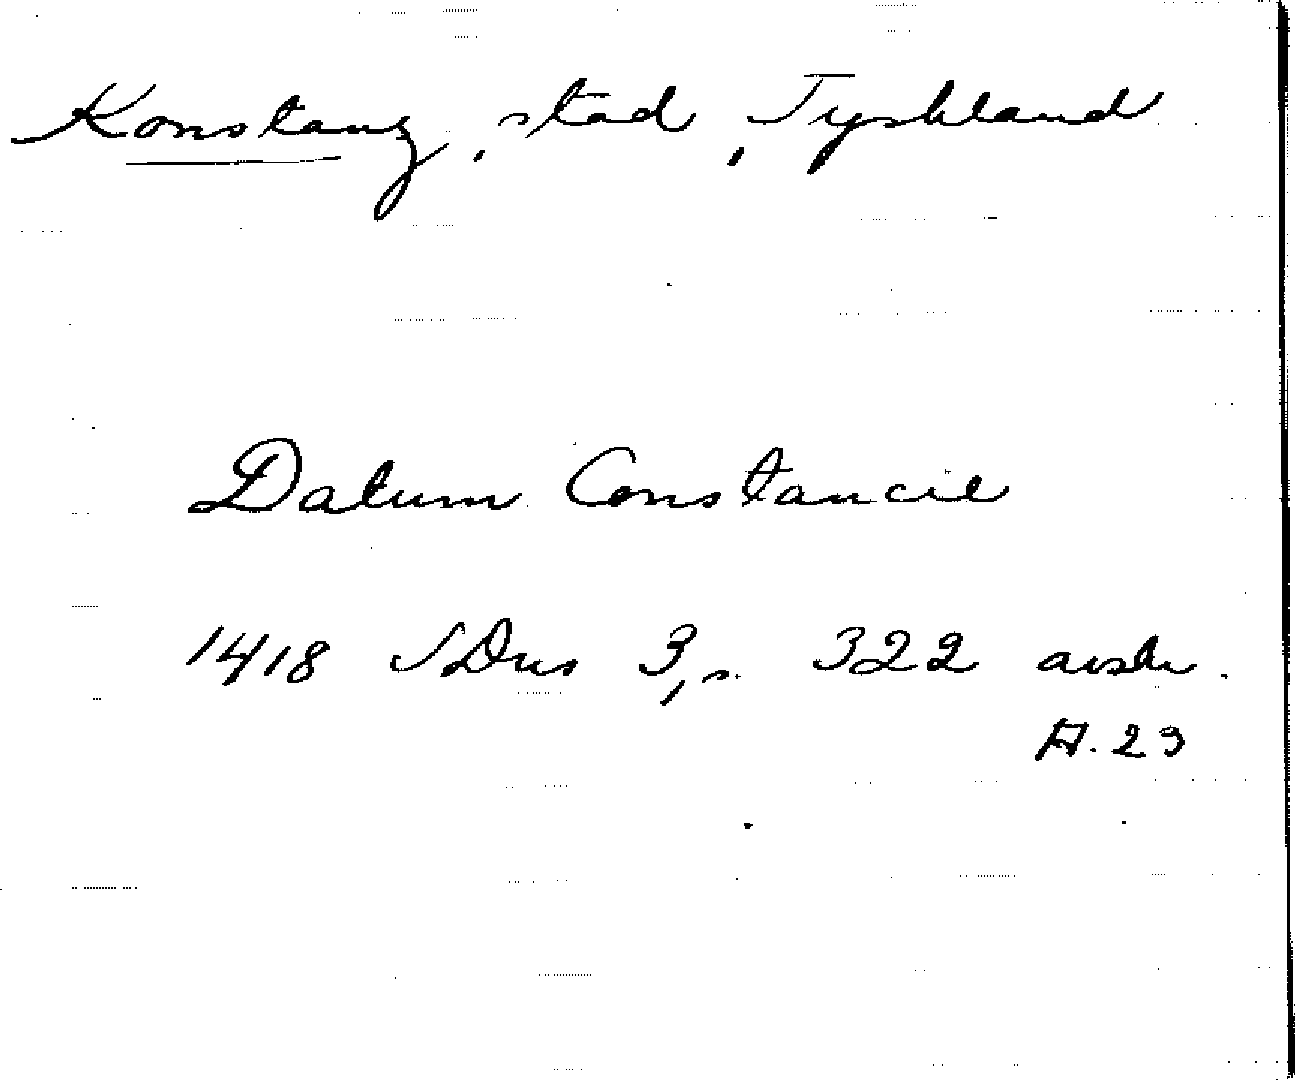 Konstanz, stad, Tyskland
Datum Constancie
1418 SDns 3, s. 322 avskr.
A. 23